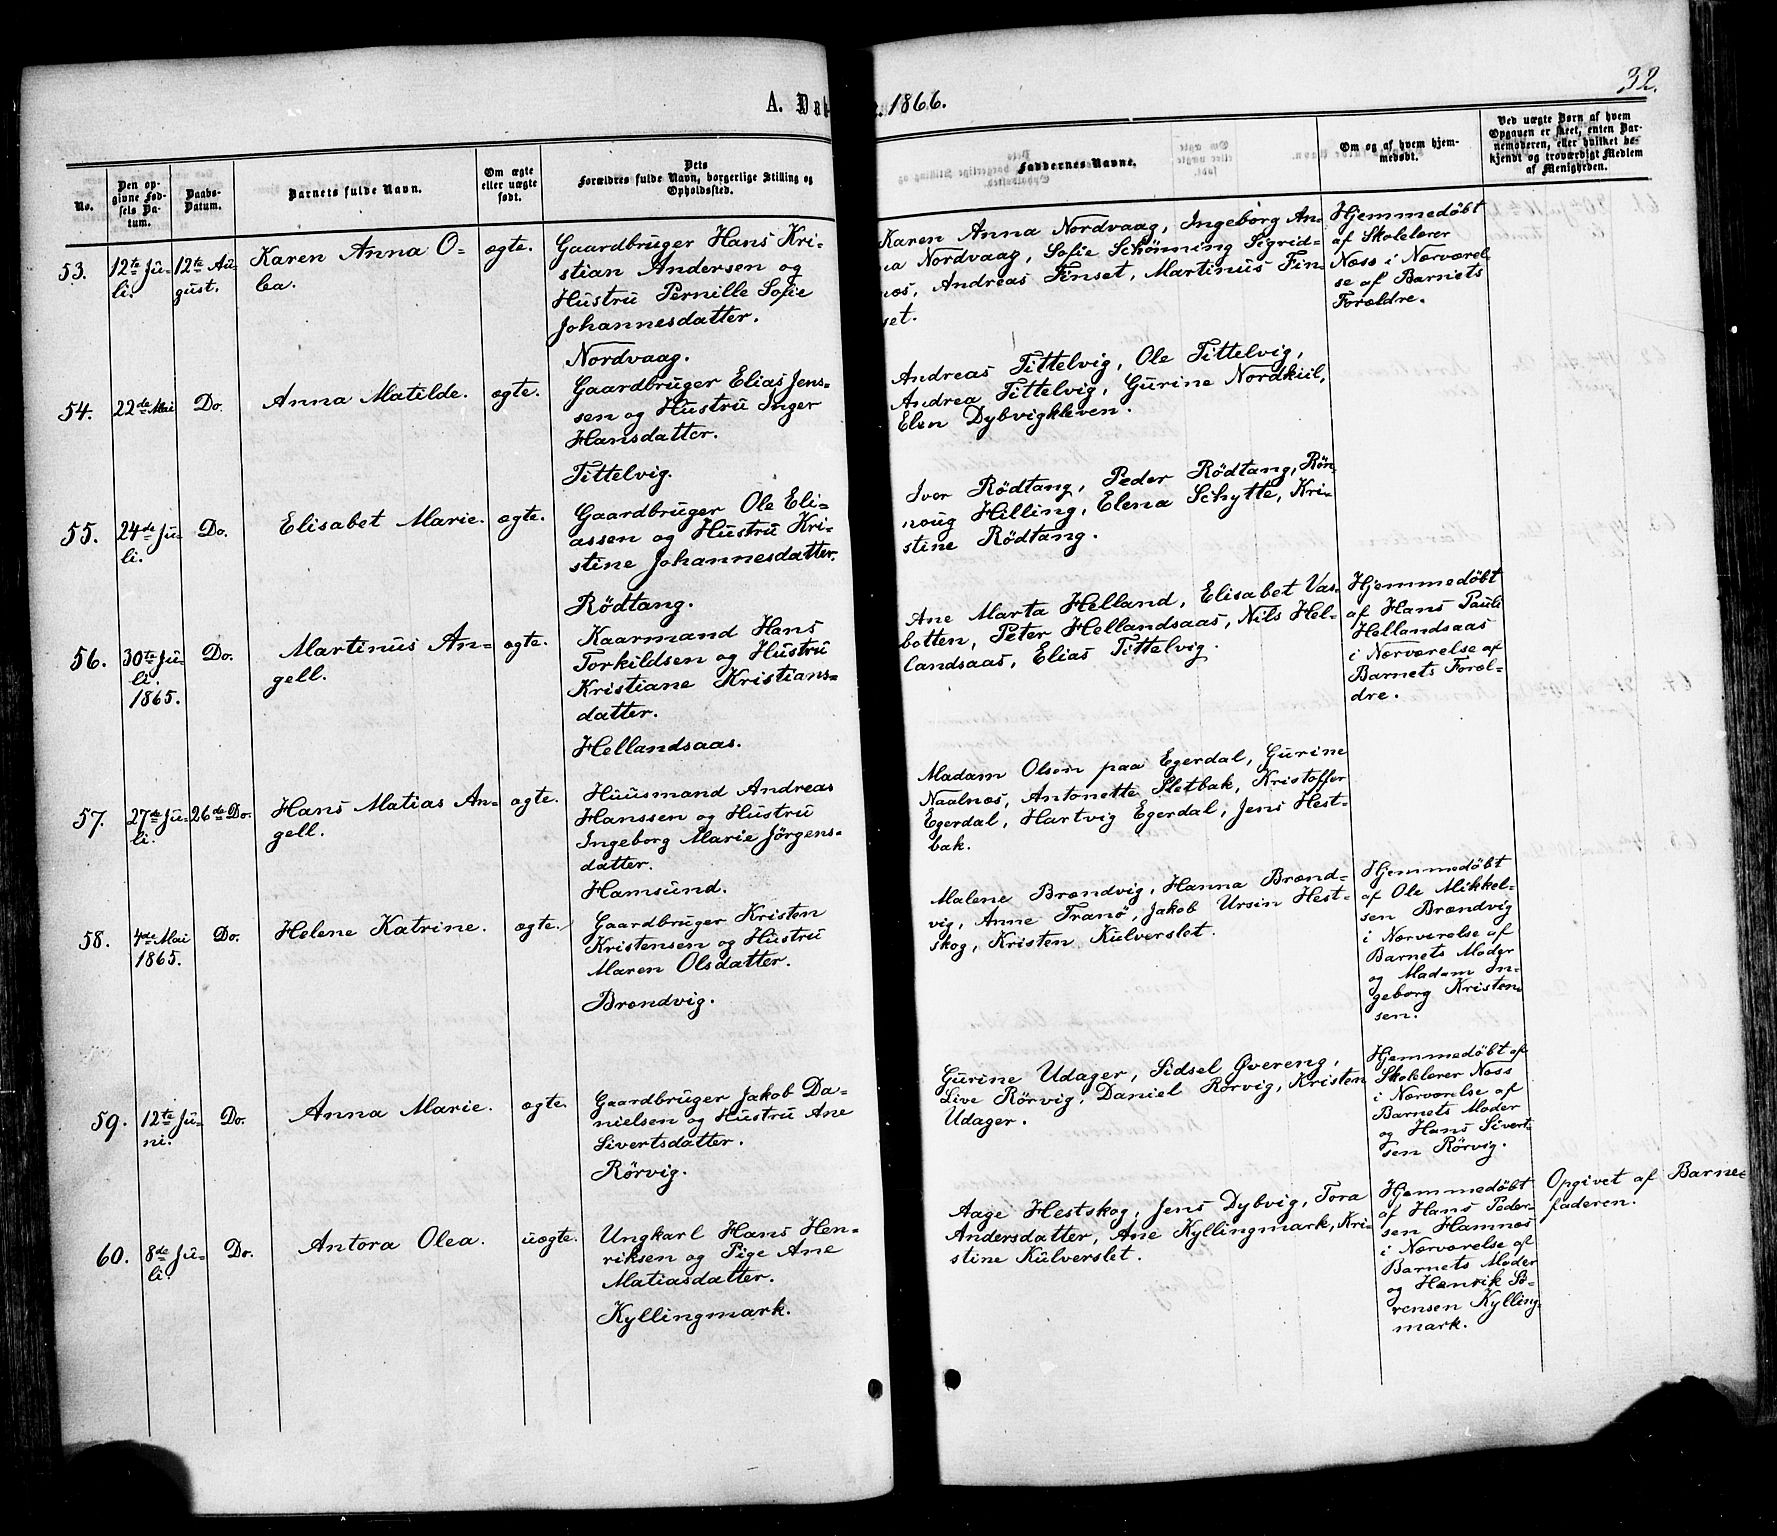 32.
A. Dab 2. 1866.
No.
Den op-
givne Fød-
sels Da-
tum.
Daabs-
Datum.
Barnets fulde Navn.
Om ægte
eller uægte
født.
Dets
Forældres fulde Navn, borgerlige Stilling og
Opholdssted.
Faddernes Navne.
Om og af hvem hjem-
medøbt.
Ved uægte Børn af hvem
Opgaven er skeet, enten Bar-
nemoderen, eller hvilket be-
kjendt og troværdigt Medlem
af Menigheden.
53.
12te Ju-
li.
12te Au-
gust.
Karen Anna O-
lea.
ægte.
Gaardbruger Hans Kri-
stian Andersen og
Hustru Pernille Sofie
Johannesdatter.
Nordvaag.
Karen Anna Nordvaag, Ingeborg An-
na Nordvaag, Sofie Schønning Sigrid-
næs, Andreas Finset, Martinus Fin-
set.
Hjemmedøbt
af Skolelærer
Næss i Nærværel-
se af Barnets
Forældre.
54.
22de Mai
Do.
Anna Matilde.
ægte.
Gaardbruger Elias Jens-
sen og Hustru Inger
Hansdatter.
Tittelvig.
Andreas Tittelvig, Ole Tittelvig,
Andrea Tittelvig, Gurine Nordkiil,
Elen Dybvigkleven.
55.
24de Ju-
li.
Do.
Elisabet Marie.
ægte.
Gaardbruger Ole Eli-
assen og Hustru Kri-
stine Johannesdatter.
Rødtang.
Iver Rødtang, Peder Rødtang, Røn-
noug Hilling, Elena Schytte, Kri-
stine Rødtang.
56.
30te Ju-
li.
1865.
Do.
Martinus An-
gell.
ægte.
Kaarmand Hans
Torkildsen og Hustru
Kristiane Kristians-
datter.
Hellandsaas.
Ane Marta Helland, Elisabet Vas-
botten, Peter Hellandsaas, Nils Hel-
landsaas, Elias Tittelvig.
Hjemmedøbt
af Hans Pauli
Hellandsaas
i Nærværelse af
Barnets Foræl-
dre.
57.
27de Ju-
li.
26de Do.
Hans Matias An-
gell.
ægte.
Huusmand Andreas
Hanssen og Hustru
Ingeborg Marie Jørgens-
datter.
Hamsund.
Madam Olsen paa Egerdal, Gurine
Naalnæs, Antonette Sletbak, Kristoffer
Egerdal, Hartvig Egerdal, Jens Hest-
bak.
58.
4de Mai
1865.
Do.
Helene Katrine.
ægte.
Gaardbruger Kristen
Kristensen og Hustru
Maren Olsdatter.
Brændvig.
Malene Brændvig, Hanna Brænd-
vig, Anne Tranø, Jakob Ursin Hest-
skog, Kristen Kulverslet.
Hjemmedøbt
af Ole Mikkel-
sen Brændvig
i Nærværelse af
Barnets Moder
og Madam In-
geborg Kristen-
sen.
59.
12te Ju-
ni.
Do.
Anna Marie.
ægte.
Gaardbruger Jakob Da-
nielsen og Hustru Ane
Sivertsdatter.
Rørvig.
Gurine Udager, Sidsel Øvereng,
Live Rørvig, Daniel Rørvig, Kristen
Udager.
Hjemmedøbt af
Skolelærer Næss
i Nærværelse af
Barnets Moder
og Hans Sivert-
sen Rørvig.
60.
8de Ju-
li.
Do.
Antora Olea.
uægte.
Ungkarl Hans Hen-
riksen og Pige Ane
Matiasdatter.
Kyllingmark.
Aage Hestskog, Jens Dybvig, Tora
Andersdatter, Ane Kyllingmark, Kri-
stine Kulverslet.
Hjemmedøbt
af Hans Peder-
sen Hamnæs
i Nærværelse af
Barnets Moder
og Henrik Sø-
rensen Kylling-
mark.
Opgivet af Barne-
faderen.